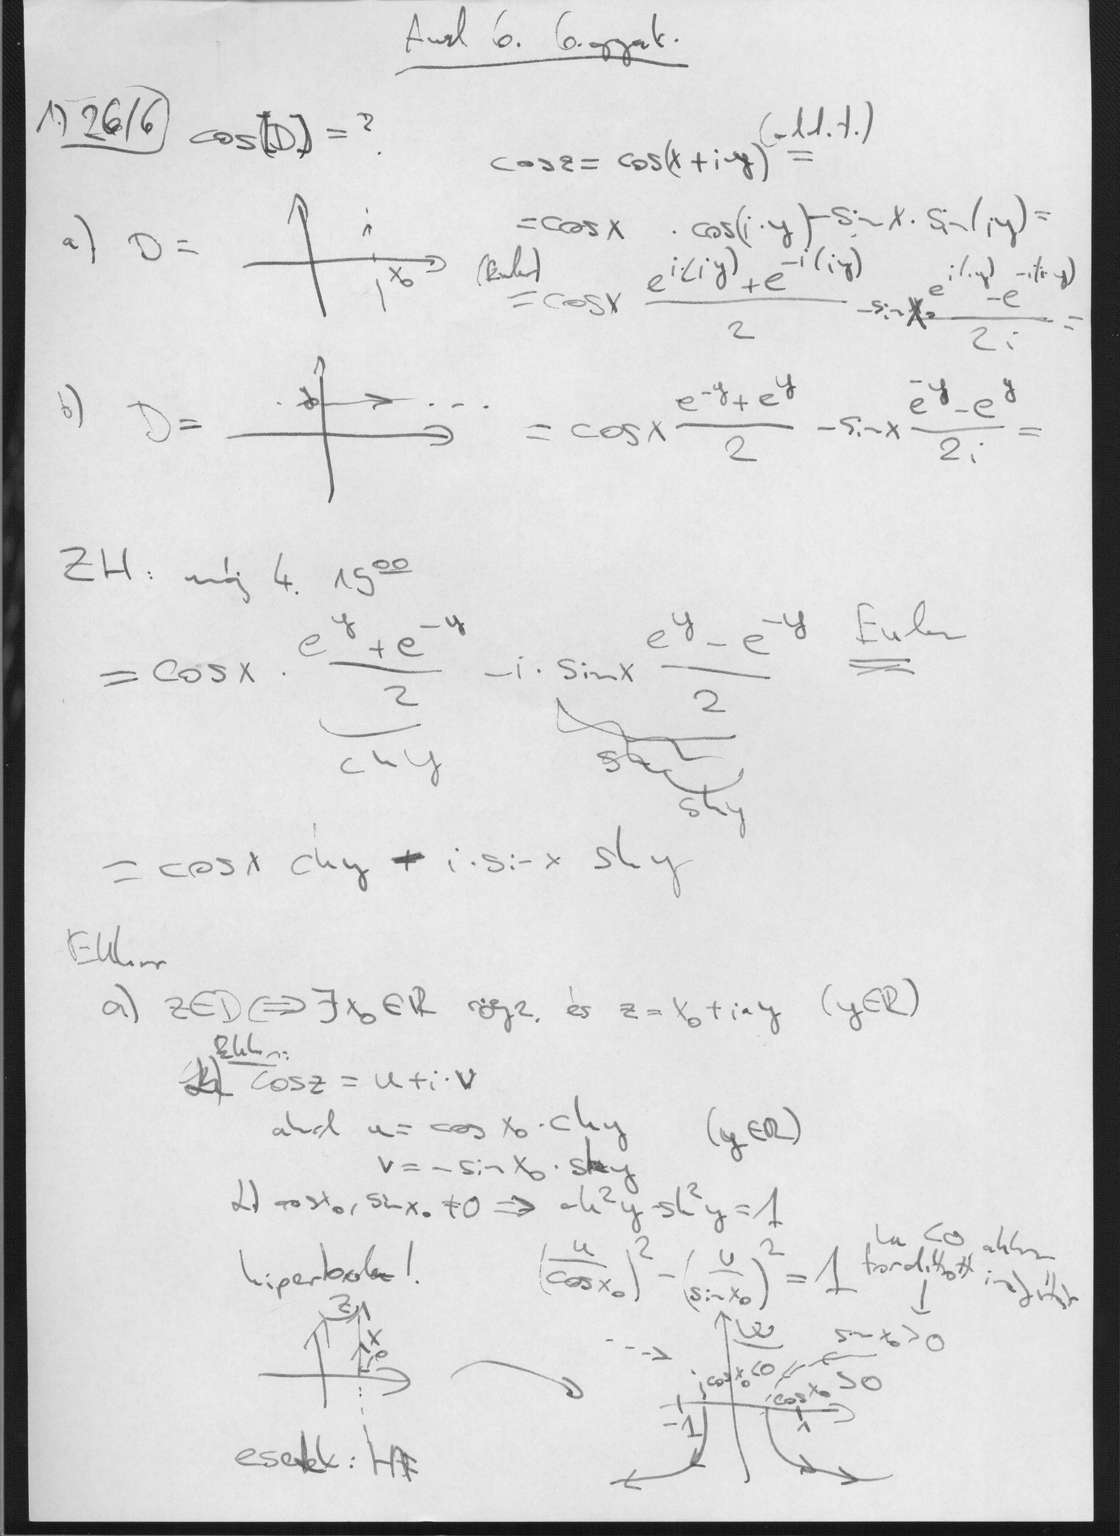 Anal 6. 6. gyak.
1) 26/6 cos[D] = ?
cos z = cos(x+iy) (add. t.) =
= cos x · cos(i·y) - sin x · sin(iy) =
a) D = x₀
(Euler) = cos x (e^{i(iy)} + e^{-i(iy)})/2 - sin x · (e^{i(iy)} - e^{-i(iy)})/2i =
b) D = ...
= cos x (e^{-y} + e^{y})/2 - sin x (e^{-y} - e^{y})/2i =
ZH: máj 4. 15⁰⁰
= cos x · (e^{y} + e^{-y})/2 - i · sin x (e^{y} - e^{-y})/2 Euler
ch y
sh y
= cos x ch y - i · sin x sh y
Ekkor
a) z∈D ⟺ ∃ x₀∈ℝ rögz. és z = x₀ + i·y (y∈ℝ)
Ekkor:
cos z = u + i·v
ahol u = cos x₀ · ch y (y∈ℝ)
v = - sin x₀ · sh y
1) cos x₀, sin x₀ ≠ 0 ⟹ ch²y - sh²y = 1
hiperbola! (u/cos x₀)² - (v/sin x₀)² = 1
ha <0 akkor fordított irányítás
sin x₀ > 0
z x₀
w
cos x₀ < 0 cos x₀ > 0
-1 1
esetek: HF